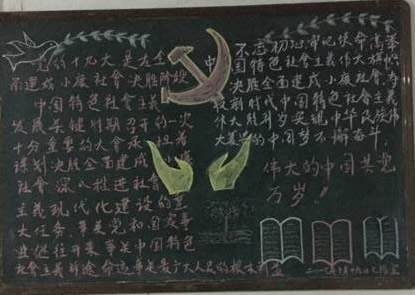 党的十九大是在全
面建成小康社會决胜阶段
中国特色社會主義
发展关键时期召开的一次
十分重要的大会承担着
谋划决胜全面建成
社會深入推进社會
主义现代化建设的重
大任务事关党和国家事
业继往开来事关中国特色
社會主义前途命运事关最广大人民的根本利益
不忘初心牢記使命高举
中国特色社會主义伟大旗帜
决胜全面建成小康社會
夺取新时代中国特色社會主义
伟大胜利为实现中华民族伟
大复兴的中国梦不懈奋斗
伟大的中国共党
万岁！